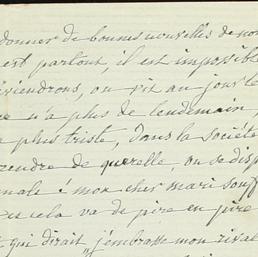 donner de bonnes nouvelles de no
est partout, il est impossible
iendrons, on vit au jour le
n'a plus de lendemain,
plus triste, Dans la société
rendre de querelle, on se disp
mon cher mari souf
cela va de pire en pire
qui dirait „j'embrasse mon rival